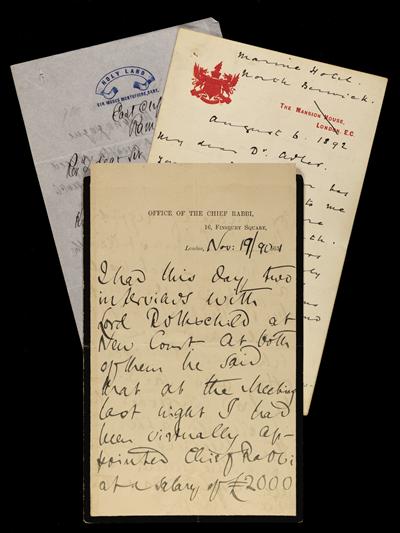 HOLY LAND
SIR MOSES MONTEFIORE, BART.
East Cliff
Ram
Revd Dear Sir
Marine Hotel.
North Berwick.
THE MANSION HOUSE,
LONDON, E.C.
August 6. 1892
My dear Dr. Adler.
has
to me
OFFICE OF THE CHIEF RABBI,
16, FINSBURY SQUARE,
London, Nov: 19/90
I had this day two
interviews with
Lord Rothschild at
New Court at both
of them he said
that at the Meeting
last night I had
been virtually ap-
pointed Chief Rabbi
at a salary of £2000